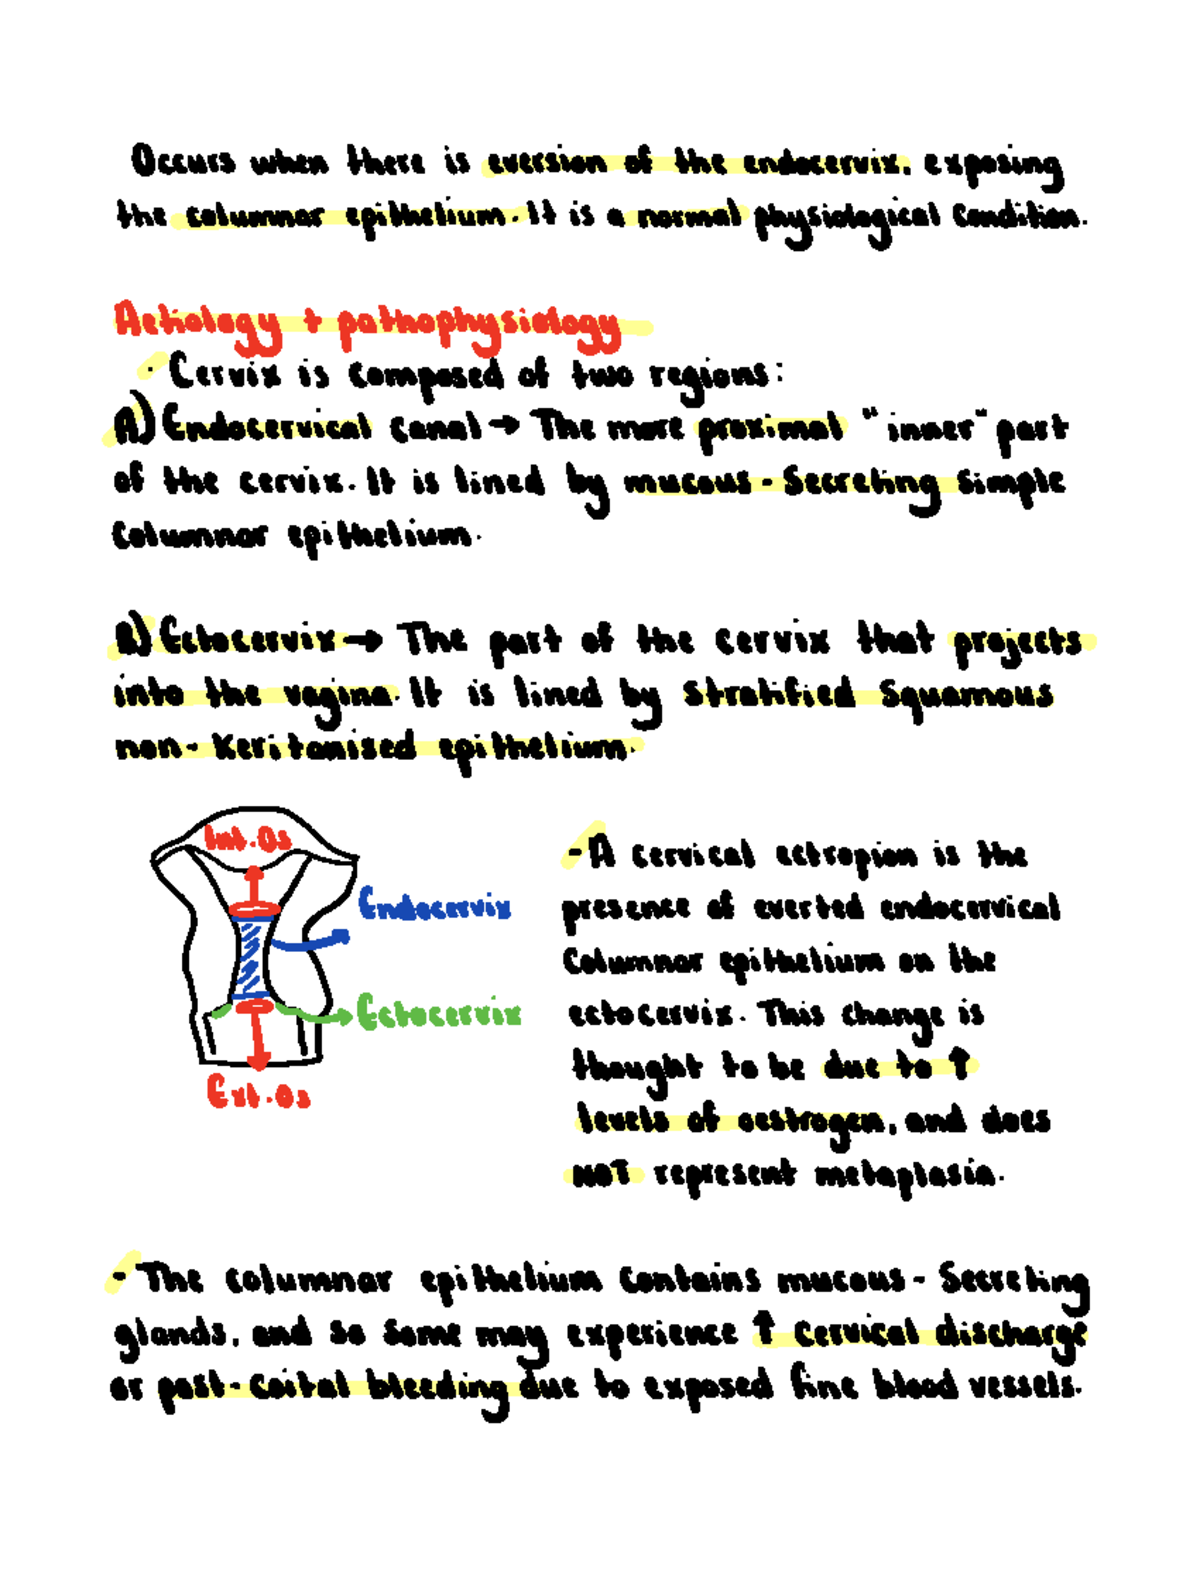 Occurs when there is eversion of the endocervix, exposing
the columnar epithelium. It is a normal physiological condition.
Aetiology + pathophysiology
· Cervix is composed of two regions:
A) Endocervical canal → The more proximal "inner" part
of the cervix. It is lined by mucous-secreting simple
columnar epithelium.
B) Ectocervix → The part of the cervix that projects
into the vagina. It is lined by stratified squamous
non-keritanised epithelium.
Int.Os
Endocervix
Ectocervix
Ext.Os
- A cervical ectropion is the
presence of everted endocervical
columnar epithelium on the
ectocervix. This change is
thought to be due to ↑
levels of oestrogen, and does
NOT represent metaplasia.
- The columnar epithelium contains mucous-secreting
glands, and so some may experience ↑ cervical discharge
or post-coital bleeding due to exposed fine blood vessels.